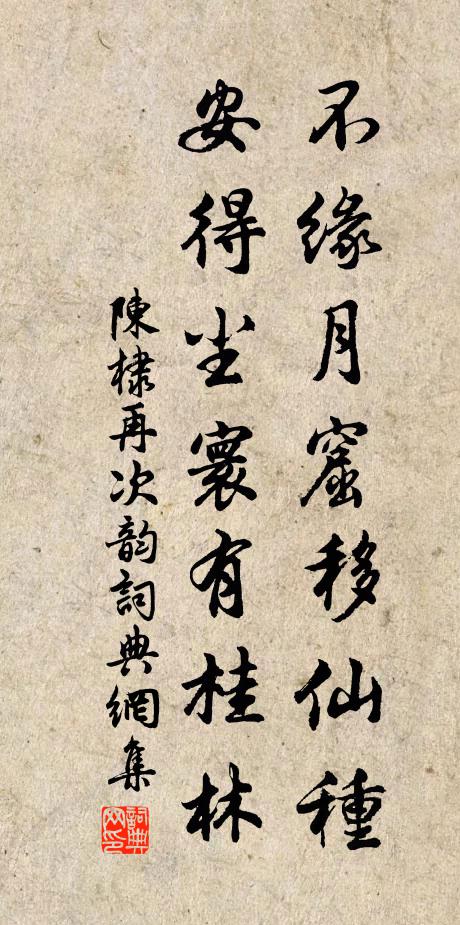 不缘月窟移仙種
安得尘寰有桂林
陳棣再次韵詞典網集
詞典网印